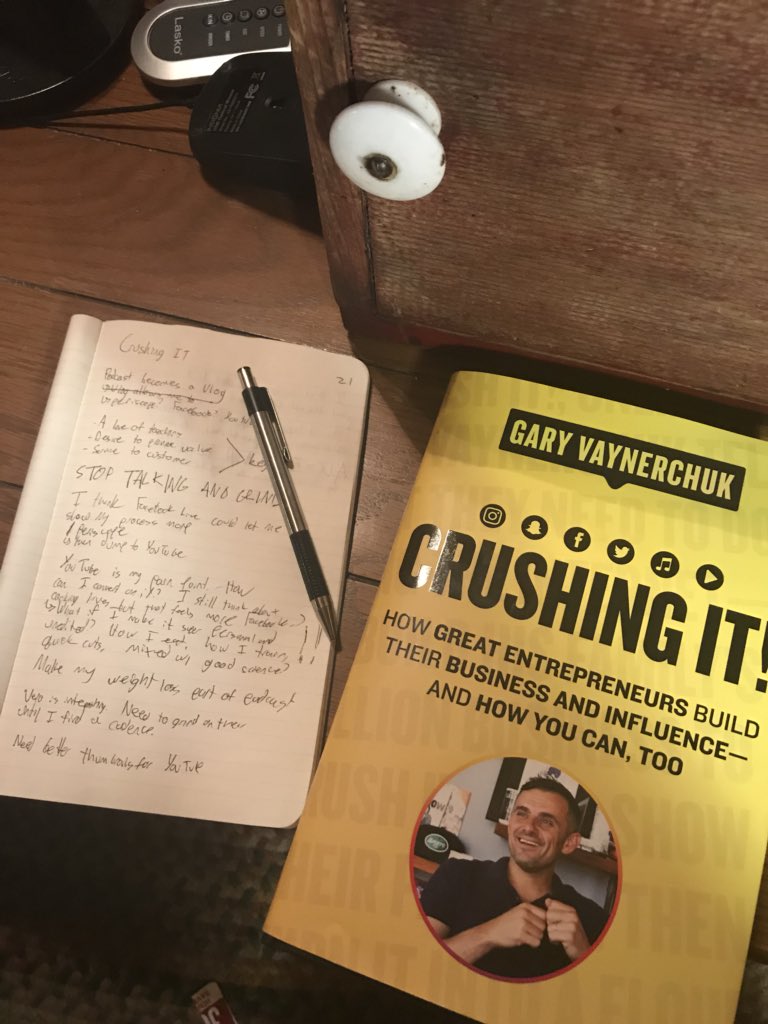 Lasko
FC
Crushing IT
21
Podcast becomes a Vlog
Facebook?
- A love of teaching
- Desire to provide value
- Service to customer
> key
STOP TALKING AND GRIND
I think Facebook Live could let me
show my process more
Periscope
dump to YouTube
YouTube is my pain point. How
can I I still think about
but that feels more Facebook.
What if I make it super personal and
unedited? How I eat, how I train,
quick cuts, mixed w/ good science?
Make my weight loss part of podcast
is Need to grind on their
until I find a cadence.
Need better thumbnails for YouTube
GARY VAYNERCHUK
CRUSHING IT!
HOW GREAT ENTREPRENEURS BUILD
THEIR BUSINESS AND INFLUENCE—
AND HOW YOU CAN, TOO